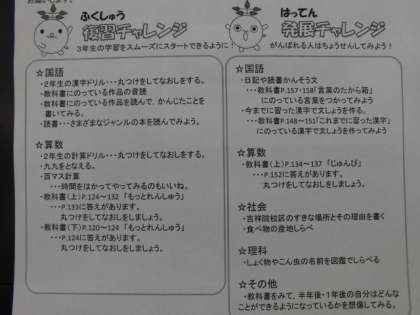 お願いします。
ふくしゅう
復習チャレンジ
3年生の学習をスムーズにスタートできるように!
☆国語
・2年生の漢字ドリル・・・丸つけしてなおしをする。
・教科書にのっている作品の音読
・教科書にのっている作品を読んで、かんじたことを
書いてみる。
・読書・・・さまざまなジャンルの本を読んでみよう。
☆算数
・2年生の計算ドリル・・・丸つけしてなおしをする。
・九九をとなえる。
・百マス計算
・・・時間をはかってやってみるのもいいね。
・教科書(上)P.124~132「もっとれんしゅう」
・・・P.133に答えがあります。
丸つけをしてなおしをしましょう。
・教科書(下)P.120~124「もっとれんしゅう」
・・・P.124に答えがあります。
丸つけをしてなおしをしましょう。
はってん
発展チャレンジ
がんばれる人はちょうせんしてみよう!
☆国語
・日記や読書かんそう文
・・・教科書P.157・158「言葉のたから箱」
にのっている言葉をつかってみよう
・今までに習った漢字で文しょうを作る。
・・・教科書P.148~151「これまでに習った漢字」
にのっている漢字で文しょうを作ってみよう
☆算数
・教科書(上)P.134~137「じゅんび」
・・・P.152に答えがあります。
丸つけをしてなおしをしましょう。
☆社会
・吉祥院校区のすきな場所とその理由を書く
・食べ物の産地しらべ
☆理科
・しょく物やこん虫の名前を図鑑でしらべる
☆その他
・教科書をみて、半年後・1年後の自分はどんな
ことができるようになっているかを想像してみる。